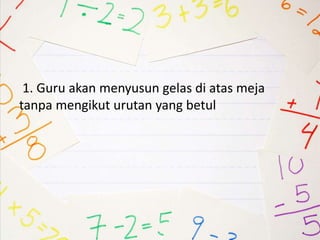 1 ÷ 2 = 2
3 + 3 = 6
1. Guru akan menyusun gelas di atas meja
tanpa mengikut urutan yang betul
3
8
+ 1
4
10
- 5
5
+ 5 =
7 - 2 = 5
9 -